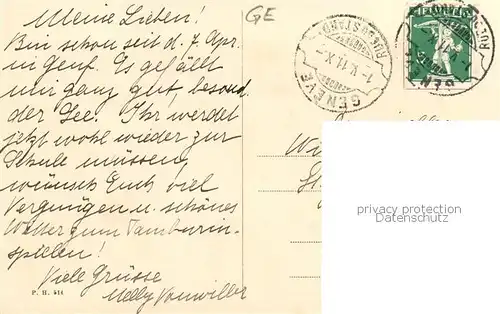 Meine Lieben!
Bin schon seit d. 7. Apr.
in Genf. Es gefällt
mir ganz gut, besond.
der See. Ihr werdet
jetzt wohl wieder zur
Schule müssen,
wünsch Euch viel
Vergnügen u. schönes
Wetter zum Tambourin-
spielen!
Viele Grüsse
Nelly Vonwiller
P. H. 514
GE
GENÈVE
RUE DU STAND
1. V. 11. X
HELVETIA
GENÈVE
privacy protection
Datenschutz